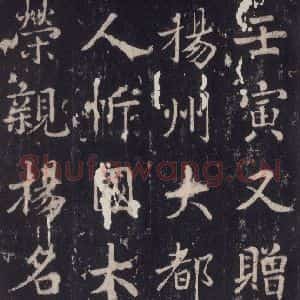 壬寅又贈
楊州大都
人忻國木
榮親揚名
Shufawang.CN